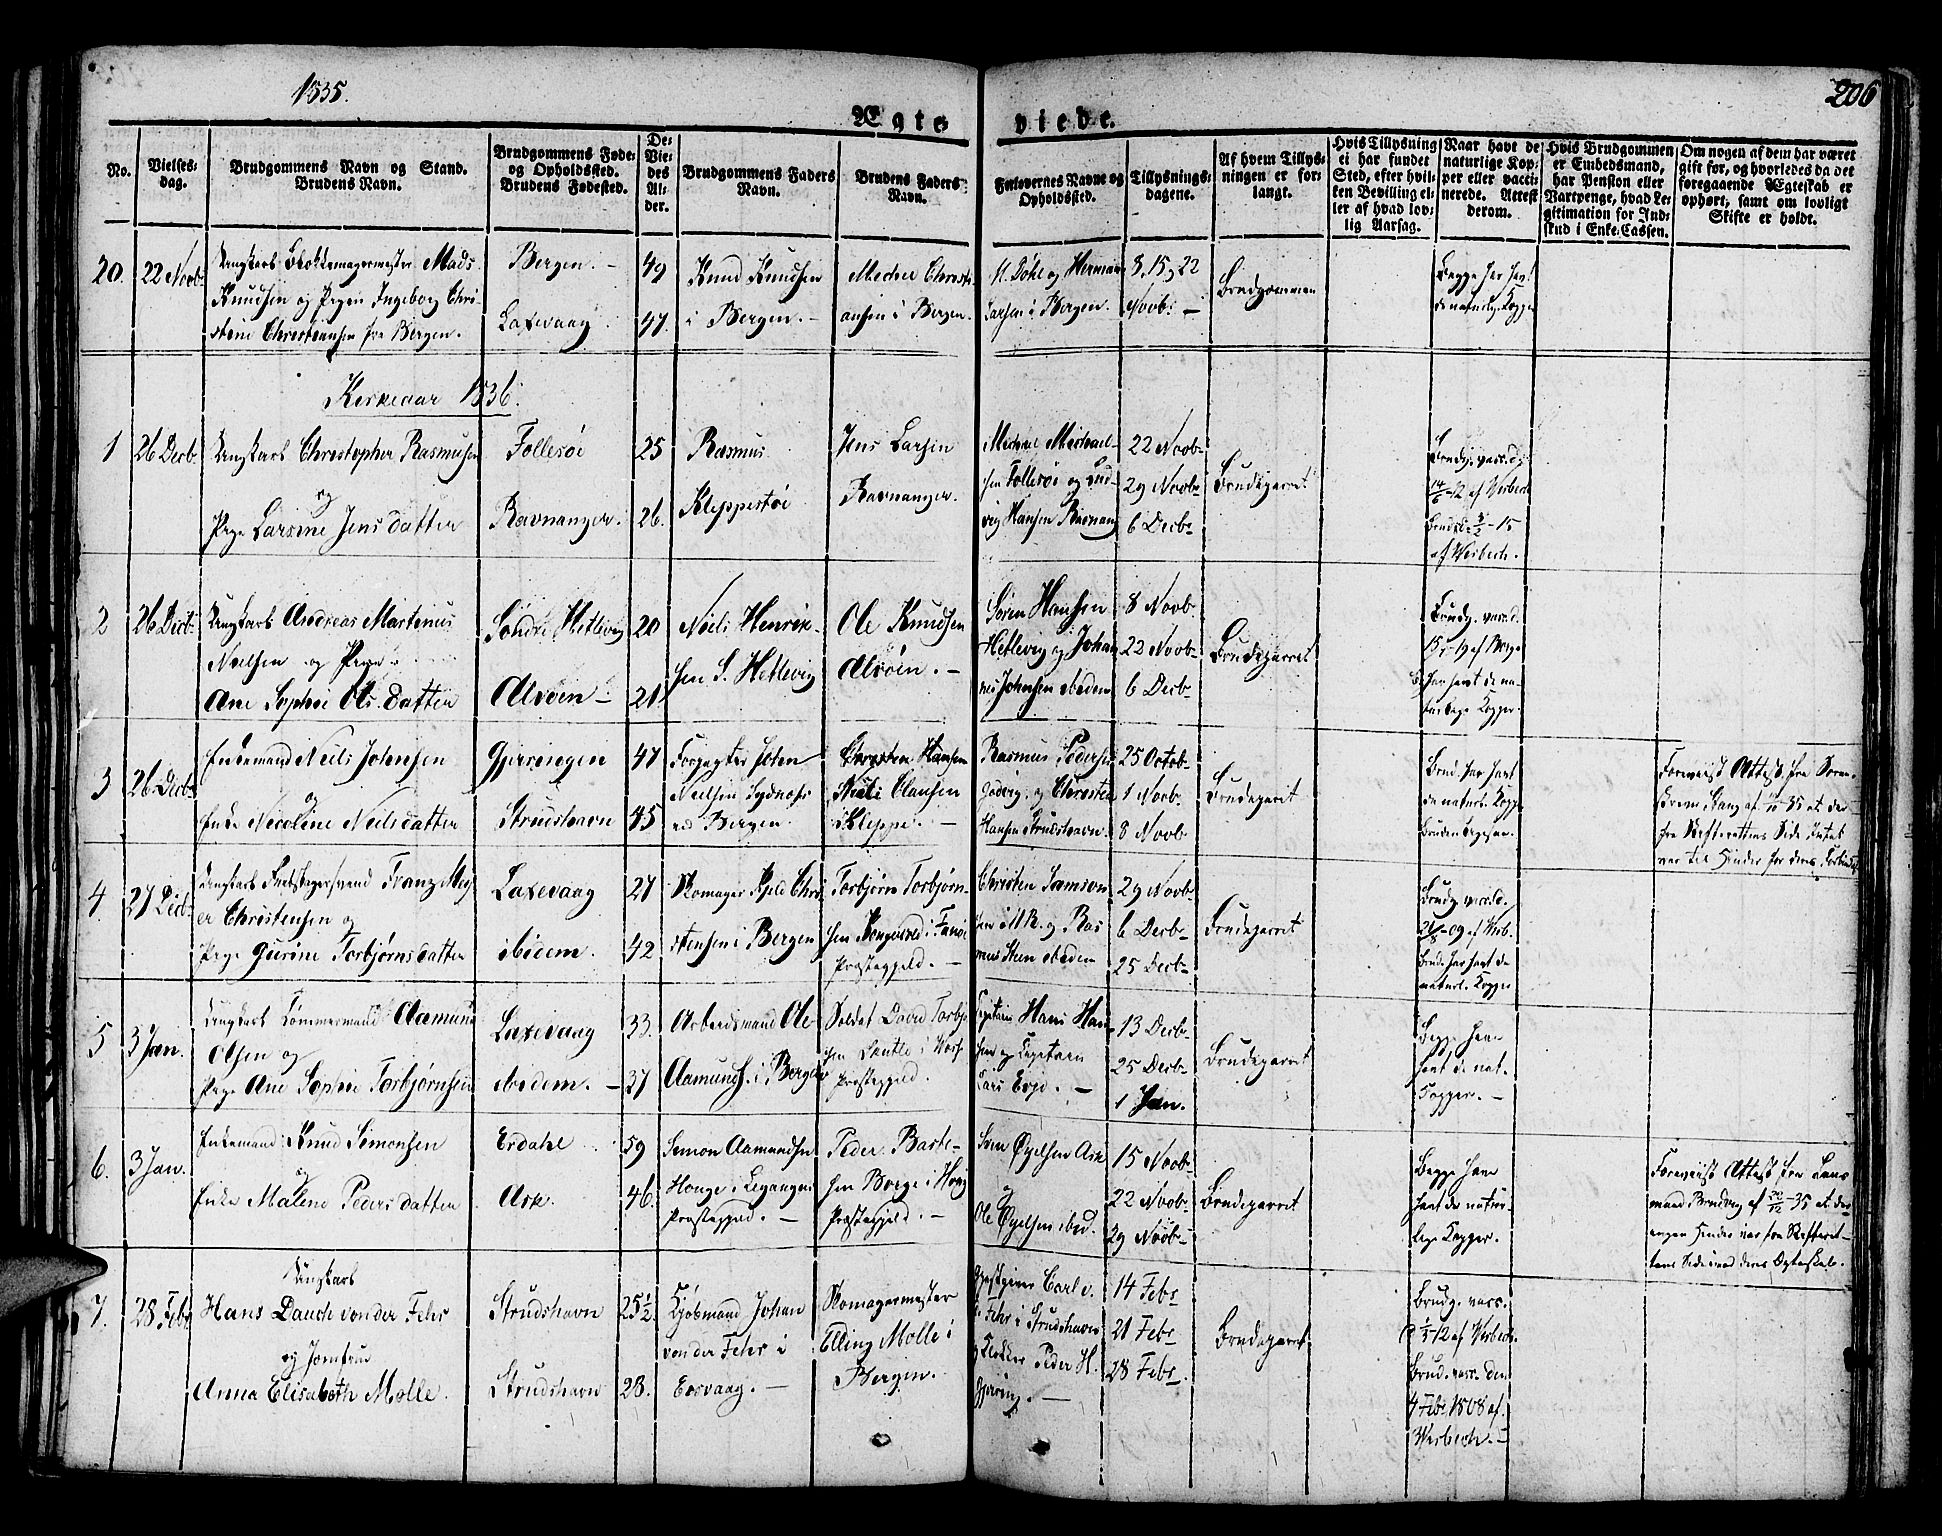 1835.
206
Ægte viede.
No.
Vielses-
dag.
Brudgommens Navn og Stand.
Brudens Navn.
Brudgommens Føde-
og Opholdssted.
Brudens Fødested.
De
Vie-
des
Al-
der.
Brudgommens Faders
Navn.
Brudens Faders
Navn.
Forlovernes Navne og
Opholdssted.
Tillysnings-
dagene.
Af hvem Tillys-
ningen er for-
langt.
Hvis Tillysning
ei har fundet
Sted, efter hvil-
ken Bevilling el-
ler af hvad lov-
lig Aarsag.
Naar havt de
naturlige Kop-
per eller vacci-
nerede. Attest
derom.
Hvis Brudgommen
er Embedsmand,
har Pension eller
Vartpenge, hvad Le-
gitimation for Ind-
skud i Enke-Cassen.
Om nogen af dem har været
gift før, og hvorledes da det
foregaaende Ægteskab er
ophørt, samt om lovligt
Skifte er holdt.
20.
22 Novb.
Ungkarl Blokkemagermester Mads
Knudsen og Pigen Ingeborg Chri-
stine Christiansen fra Bergen.
Bergen. -
Laxevaag.
49
47.
Knud Knudsen
i Bergen. -
Michel Christi-
ansen i Bergen.
M. Döhl og Herman
Larsen i Bergen.
8, 15, 22
Novb: -
Brudgommen
Begge har havt
de naturlg. Kopper
Kirkeaar 1836.
1
26 Decb.
Ungkarl Christopher Rasmusen
og
Pige Larsine Jensdatter
Follesøe
Ravnanger.
25
26.
Rasmus
Kleppestøe
Jens Larsen
Ravnanger.
Michael Michael-
sen Follesøe og Lud-
vig Hansen Ravnang
22 Novb-
29 Novb-
6 Decb-
Brudeparret
Brudg. vacc. d.
14/6-12 af Wesbech
Brud d. 3/2-15
af Wesbech.
2
26 Decb.
Ungkarl Andreas Martinus
Neelsen og Pige
Ane Sophie Olsdatter
Söndre Hetlevig
Alvöen -
20
21
Niels Henrik-
sen S. Hetlevig
Ole Knudsen
Alvöen. -
Sören Hansen
Hetlevig og Johan
nes Johnsen ibidem
8 Novb.
22 Novb-
6 Decb-
Brudeparret
Brudg. vacc. d.
B. har havt de na-
turlige Kopper.
3
26 Decb.
Enkemand Neils Johnsen
og
Enke Nicoline Neilsdatter
Gjerningen
Strudshavn
47
45
Neilsen Sydnæs
ved Bergen.
Christen Hansen
Neils Clausen
i Kleppe. -
Rasmus Pedersen
Godvig. og Christen
Hansen Strudshavn.
25 Octob-
1 Novb.
8 Novb
Brudeparret
Brud. har havt
de naturl. Kopper
Foreviist Attest fra Soren-
skriver Stang af -35 at der
fra Skifterettens Side Intet
var til Hinder for deres Forbindelse
4
27 Decb-
Ungkarl Franz Mey-
er Christensen og
Pige Gurine Torbjørnsdatter
Laxevaag
ibidem.
27
42
Skomager Chri
stensen i Bergen
Torbjørn Torbjørn-
sen i Fanöe
Præstegjeld. -
Christen Samson
sen i og Ras
mus ibidem
29 Novb-
6 Decb-
25 Decb-
Brudeparret
Brudg. vacc. d.
-09 af Wesb.
Brud. har havt de
naturl. Kopper
5
3 Jan.
Ungkarl Tømmermand Aamund
Olsen og
Pige Ane Sophie Torbjørnsen
Laxevaag
ibidem. -
33.
37
Arbeidsmand Ole
Aamunds. i Bergen
Soldat David Torbjø
Præstegjeld.
Capitain Hans Han-
sen og Capitain
Lars -
13 Decb-
25 Decb-
1 Jan.
Brudeparret
Begge have
havt de nat.
Kopper. -
6.
3 Jan.
Enkemand Knud Simonsen
og
Enke Malene Pedersdatter
Erdahl
Ask
59
46.
Simon Aamundsen
Houge i Leganger
Præstegjeld. -
Peder Baste-
sen Borge i Houg
Præstegjeld. -
Sven Øyelsen Ask
og
Ole Øyelsen ibid.
15 Novb-
22 Novb-
29 Novb-
Brudeparret
Begge have
havt de natur-
lige Kopper.
Forevist Attest fra Lens
mand Brudvig af 20/12-35 at der
ingen Hinder var fra Skifteret-
tens Side imod deres Ægteskab.
7.
28 Feb.
Ungkarl
Hans Dauch von der Fehr
og Jomfrue
Anna Elisabeth Mölle.
Strudshavn
Strudshavn
25 1/2.
28.
Kjøbmand Johan
von der Fehr i
Eesvaag. -
Skomagermester
Elling Molle i
Bergen.
Gjestgiver Carl v.
d. Fehr i Strudshavn
og Klokker Peder H.
Gjerding. -
14 Feb.
21 Feb.
28 Feb.
Brudeparret
Brudg. vacc.
-12 af Wesbech.
Brud. vacc. den
4 Feb. 1808 af.
Wesbech. -